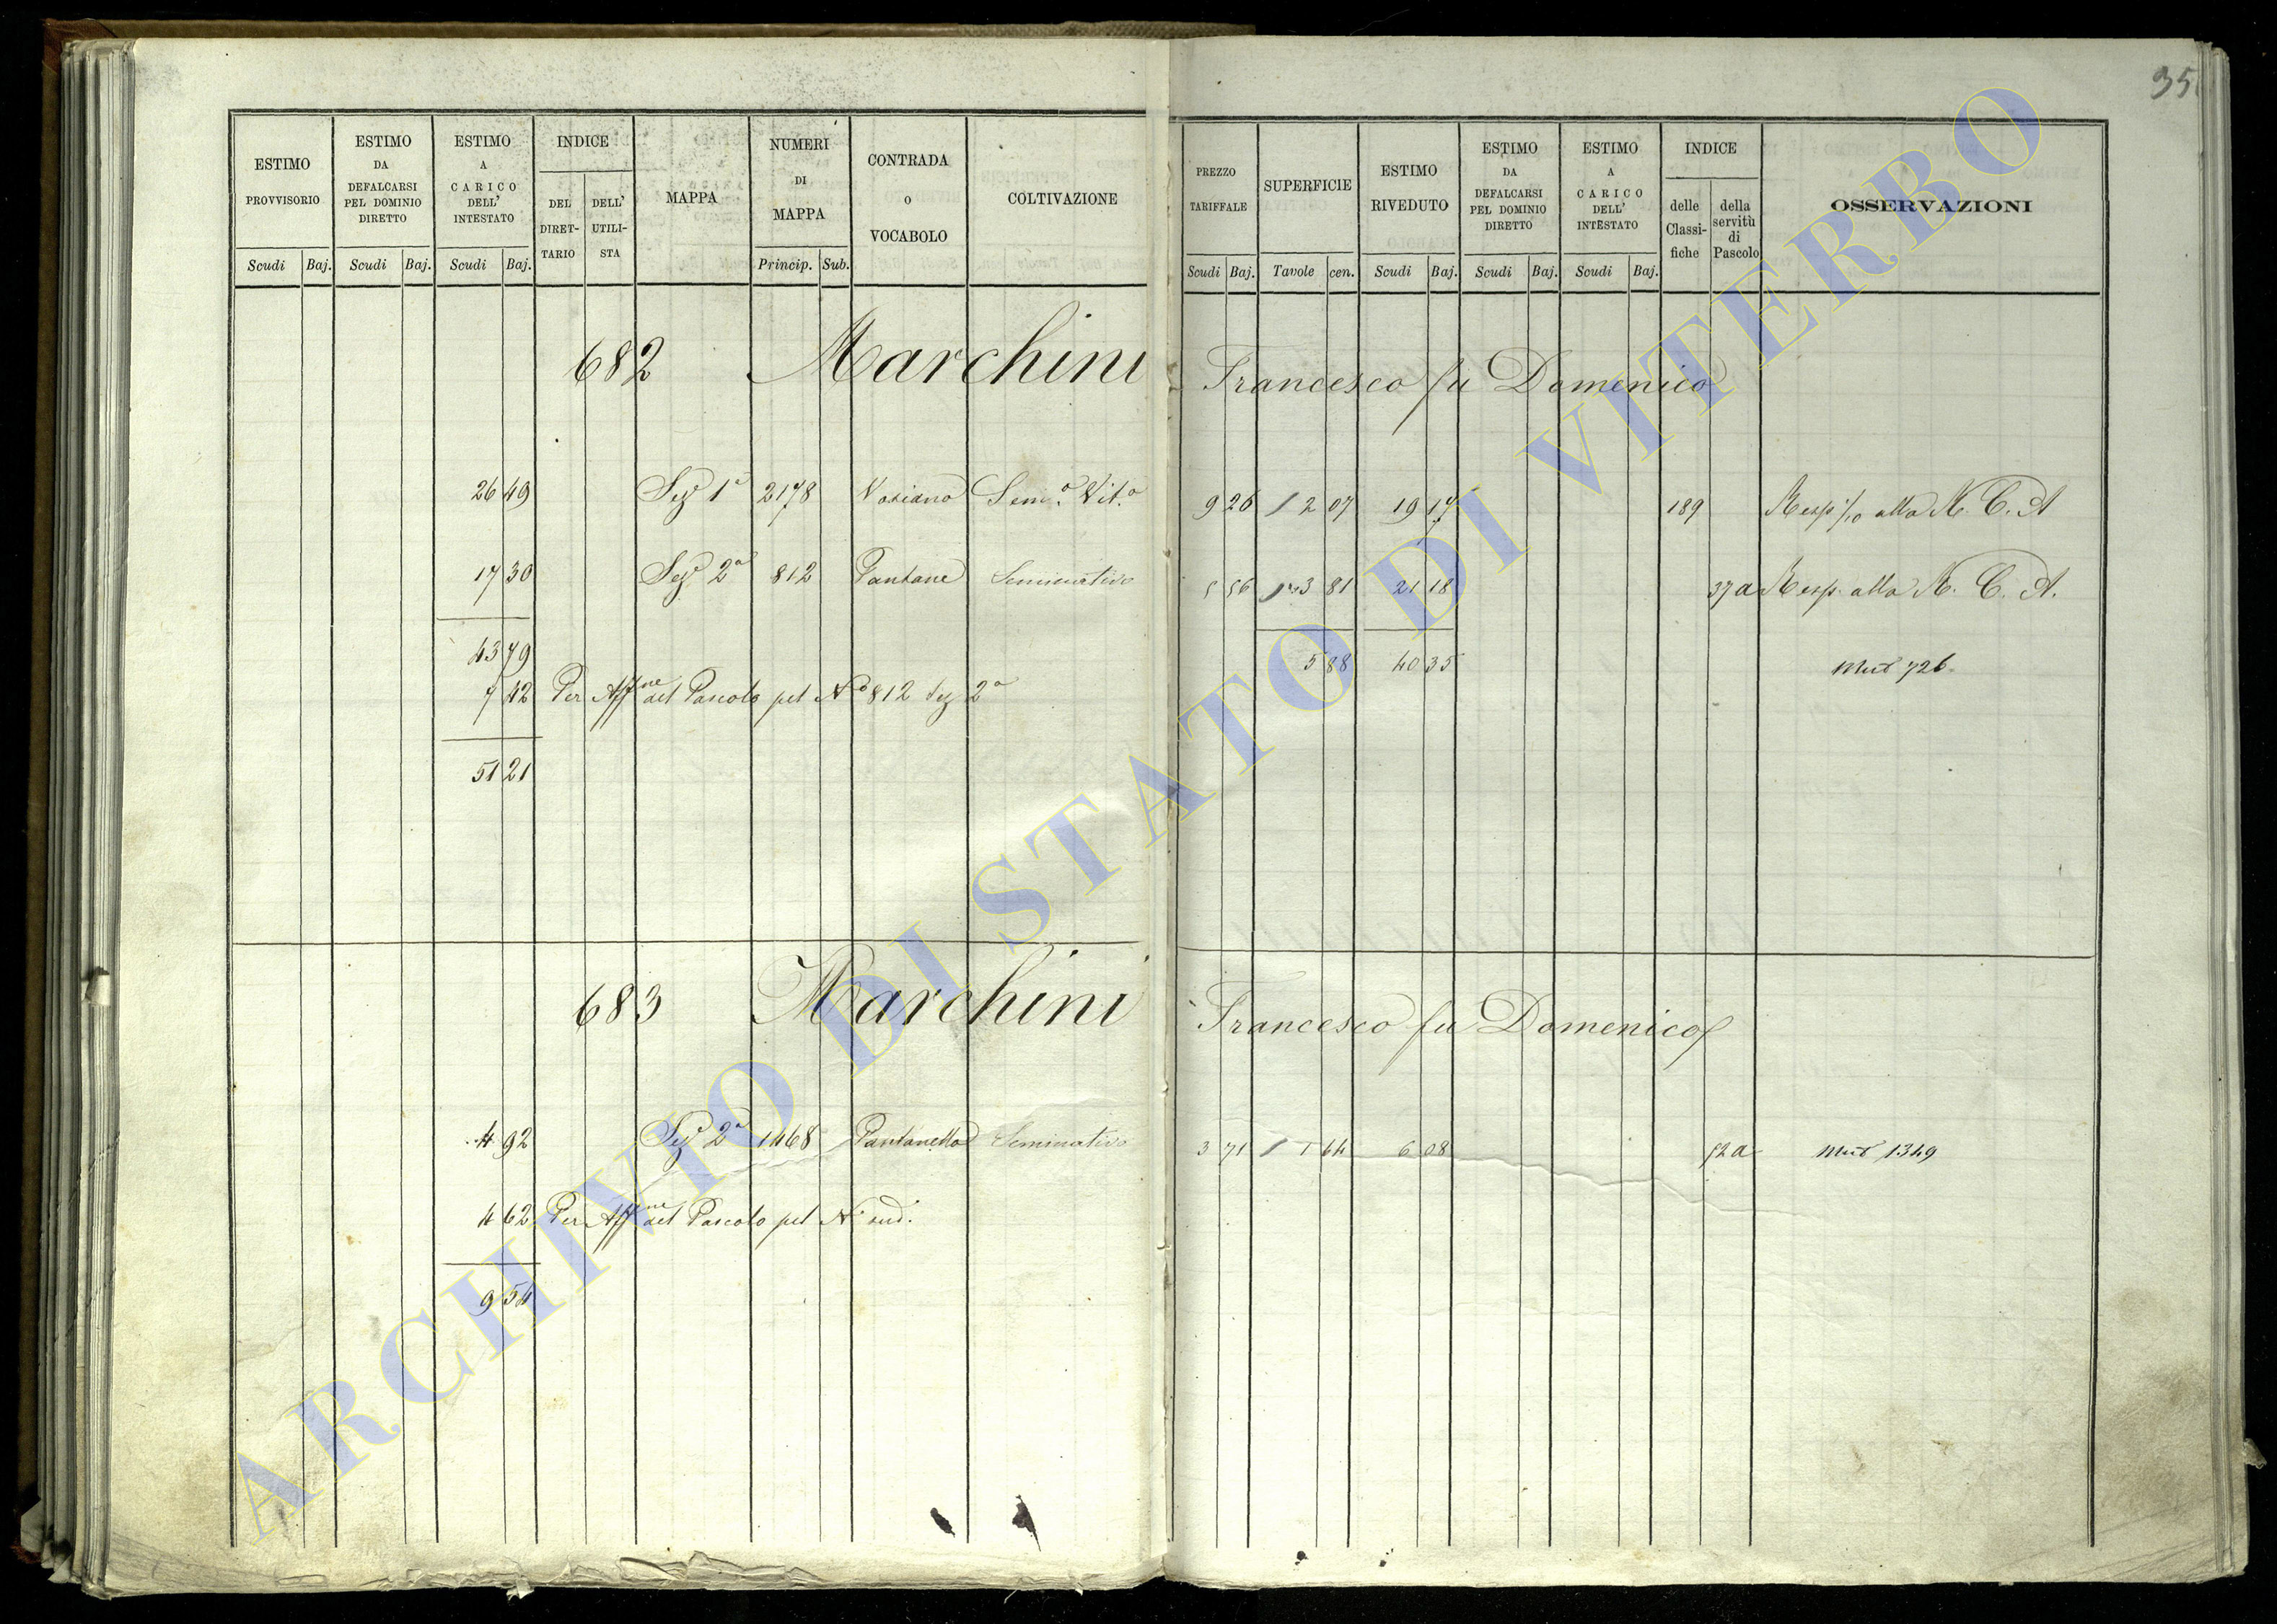 35
ESTIMO PROVVISORIO Scudi Baj.
ESTIMO DA DEFALCARSI PEL DOMINIO DIRETTO Scudi Baj.
ESTIMO A CARICO DELL' INTESTATO Scudi Baj.
INDICE DEL DIRET-TARIO DELL' UTILI-STA
MAPPA
NUMERI DI MAPPA Princip. Sub.
CONTRADA O VOCABOLO
COLTIVAZIONE
PREZZO TARIFFALE Scudi Baj.
SUPERFICIE Tavole cen.
ESTIMO RIVEDUTO Scudi Baj.
ESTIMO DA DEFALCARSI PEL DOMINIO DIRETTO Scudi Baj.
ESTIMO A CARICO DELL' INTESTATO Scudi Baj.
INDICE delle Classi-fiche della servitù di Pascolo
OSSERVAZIONI
682 Marchini Francesco fu Domenico
26 49 Sez.e 1a 2178 Sem.o Vit.o 9 26 2 07 19 17 189 Resp. alla R. C. A
17 30 Sez.e 2a 812 Pantane Seminativo 5 56 3 81 21 18 37a Resp. alla R. C. A.
43 79 5 88 40 35 Mut 726
7 42 Per Aff.ne del Pascolo pel No 812 Sez 2a
51 21
683 Marchini Francesco fu Domenico
4 92 Sez.e 2a 1468 Pantanella Seminativo 3 71 1 64 6 08 52a Mut 1349
4 62 Per Aff.ne del Pascolo pel No sud.
9 54
ARCHIVIO DI STATO DI VITERBO